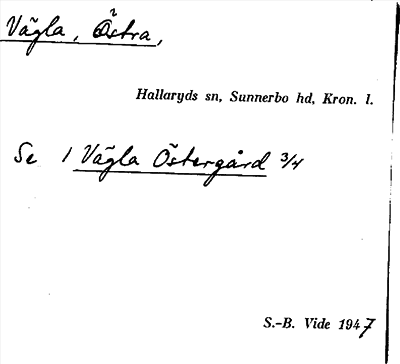 Vägla, Östra,
Hallaryds sn, Sunnerbo hd, Kron. l.
Se 1 Vägla Östergård 3/4
S.-B. Vide 1947